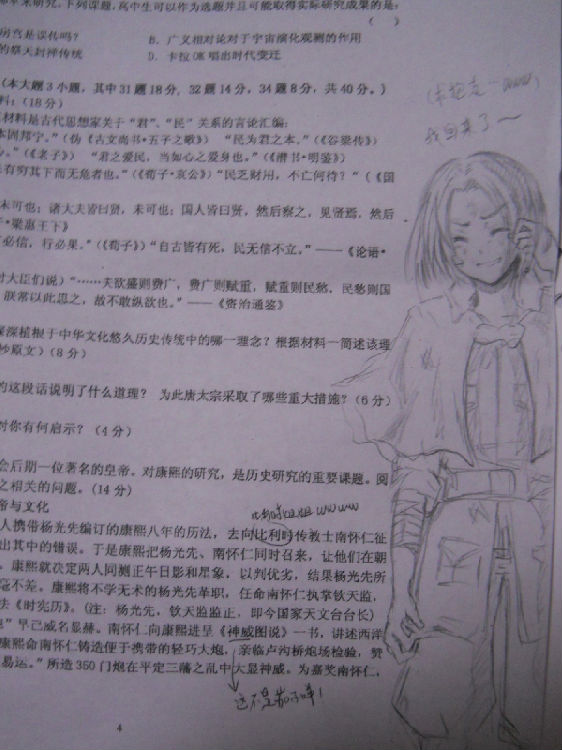 研究,下列课题,高中生可以作为选题并且可能取得实际研究成果的是:
( )
B. 广义相对论对于宇宙演化观测的作用
的祭天封禅传统
D. 卡拉OK唱出时代变迁
(本大题3小题,其中31题18分,32题14分,34题8分,共40分。)
料:(18分)
材料是古代思想家关于“君”、“民”关系的言论汇编:
本固邦宁。”(伪《古文尚书·五子之歌》) “民为君之本。”(《谷梁传》)
。”(《老子》) “君之爱民,当如心之爱身也。”(《潜书·明鉴》)
有穷其下而无危者也。”(《荀子·哀公》)“民乏财用,不亡何待?”(《国
未可也;诸大夫皆曰贤,未可也;国人皆曰贤,然后察之,见贤焉,然后
·梁惠王下》
必信,行必果。”(《荀子》)“自古皆有死,民无信不立。”——《论语·
对大臣们说)“……夫欲盛则费广,费广则赋重,赋重则民愁,民愁则国
朕常以此思之,故不敢纵欲也。”——《资治通鉴》
深深植根于中华文化悠久历史传统中的哪一理念?根据材料一简述该理
抄原文)(8分)
的这段话说明了什么道理? 为此唐太宗采取了哪些重大措施?(6分)
对你有何启示?(4分)
会后期一位著名的皇帝。对康熙的研究,是历史研究的重要课题。阅
之相关的问题。(14分)
帝与文化
人携带杨光先编订的康熙八年的历法,去向比利时传教士南怀仁征
出其中的错误。于是康熙把杨光先、南怀仁同时召来,让他们在朝
。康熙就决定两人同测正午日影和星象,以判优劣,结果杨光先所
毫不差。康熙将不学无术的杨光先革职,任命南怀仁执掌钦天监,
法《时宪历》。(注:杨光先,钦天监监正,即今国家天文台台长)
”早已威名显赫。南怀仁向康熙进呈《神威图说》一书,讲述西洋
康熙命南怀仁铸造便于携带的轻巧大炮,亲临卢沟桥炮场检验,赞
易运。”所造350门炮在平定三藩之乱中大显神威。为嘉奖南怀仁,
4
我回来了~
比利时姐姐wwwww
这不是